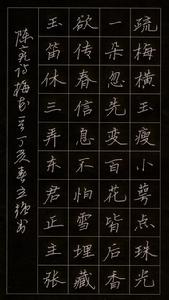 疏梅横玉瘦小萼点珠光
一朵忽先变百花皆后香
欲传春信息不怕雪埋藏
玉笛休三弄东君正主张
陈亮诗梅花一首丁亥春